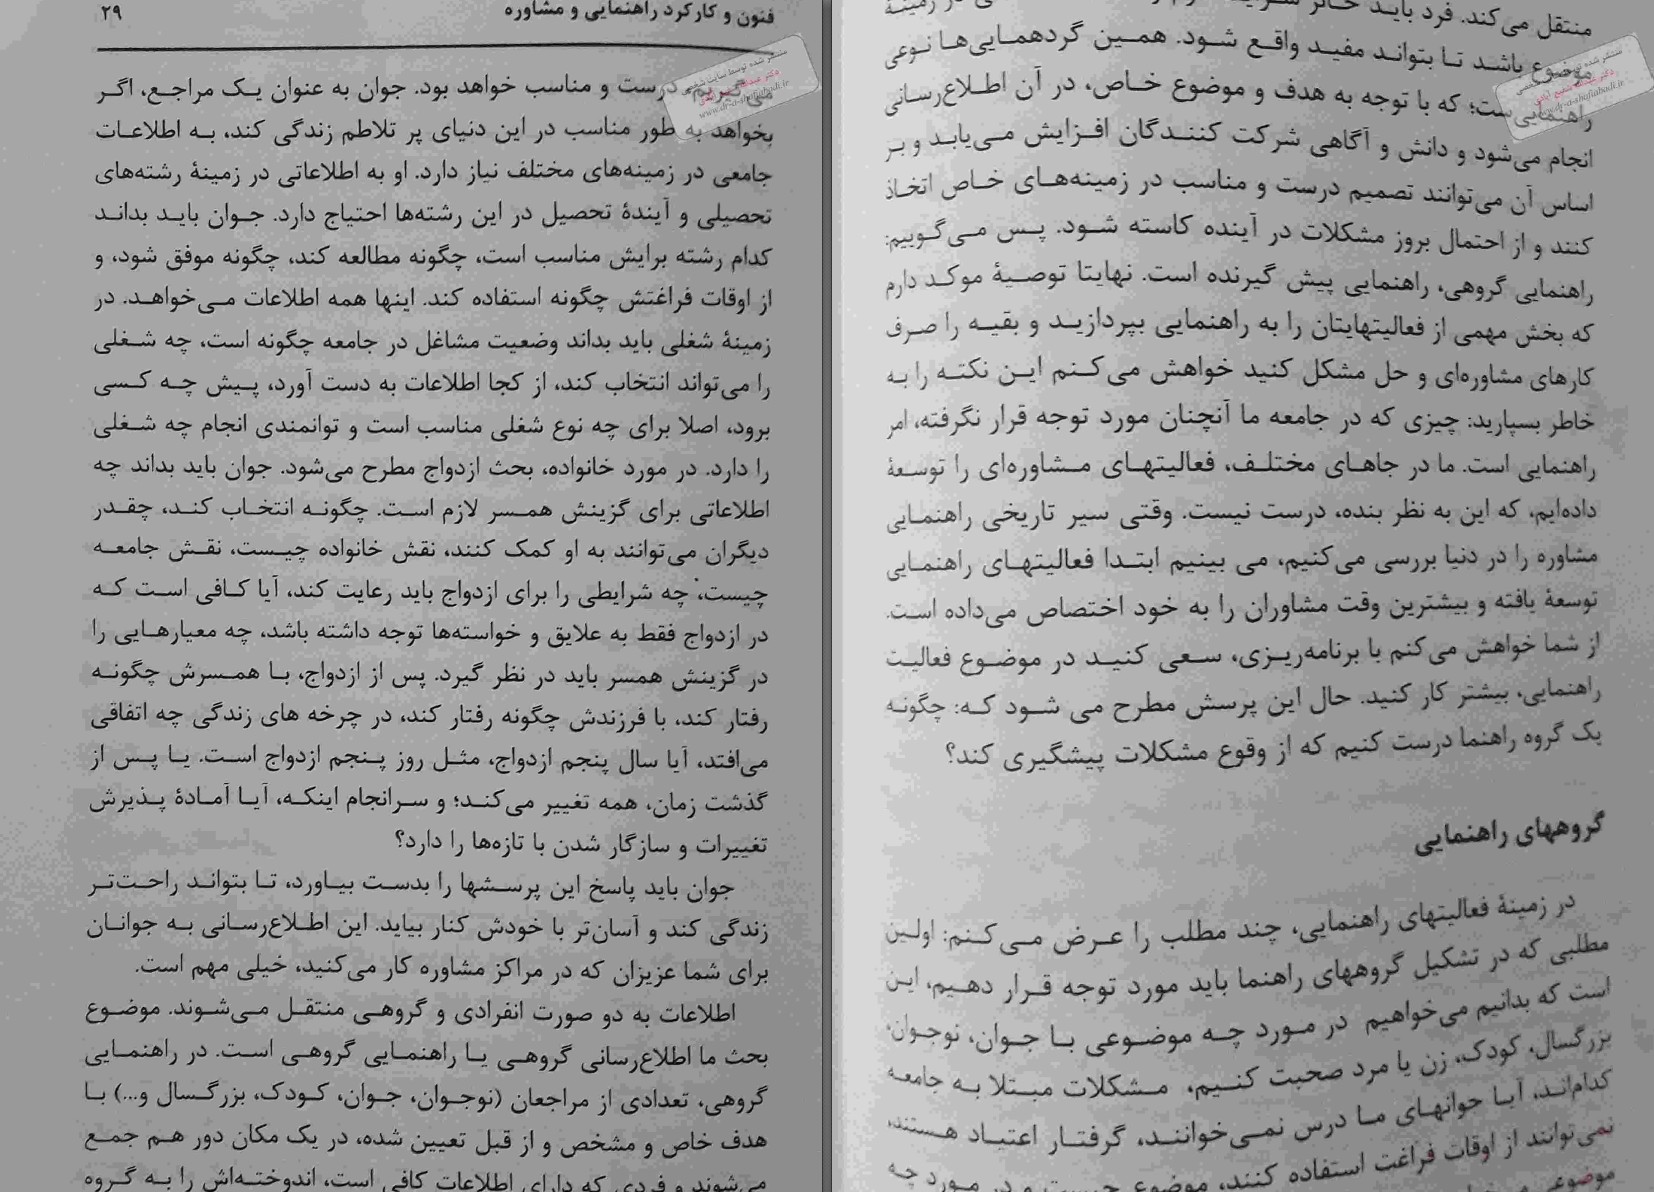 فنون و کارکرد راهنمایی و مشاوره ۲۹
می‌گیریم، درست و مناسب خواهد بود. جوان به عنوان یک مراجع، اگر
بخواهد به طور مناسب در این دنیای پر تلاطم زندگی کند، به اطلاعات
جامعی در زمینه‌های مختلف نیاز دارد. او به اطلاعاتی در زمینهٔ رشته‌های
تحصیلی و آیندهٔ تحصیل در این رشته‌ها احتیاج دارد. جوان باید بداند
کدام رشته برایش مناسب است، چگونه مطالعه کند، چگونه موفق شود، و
از اوقات فراغتش چگونه استفاده کند. اینها همه اطلاعات می‌خواهد. در
زمینهٔ شغلی باید بداند وضعیت مشاغل در جامعه چگونه است، چه شغلی
را می‌تواند انتخاب کند، از کجا اطلاعات به دست آورد، پیش چه کسی
برود، اصلا برای چه نوع شغلی مناسب است و توانمندی انجام چه شغلی
را دارد. در مورد خانواده، بحث ازدواج مطرح می‌شود. جوان باید بداند چه
اطلاعاتی برای گزینش همسر لازم است. چگونه انتخاب کند، چقدر
دیگران می‌توانند به او کمک کنند، نقش خانواده چیست، نقش جامعه
چیست، چه شرایطی را برای ازدواج باید رعایت کند، آیا کافی است که
در ازدواج فقط به علایق و خواسته‌ها توجه داشته باشد، چه معیارهایی را
در گزینش همسر باید در نظر گیرد. پس از ازدواج، با همسرش چگونه
رفتار کند، با فرزندش چگونه رفتار کند، در چرخه های زندگی چه اتفاقی
می‌افتد، آیا سال پنجم ازدواج، مثل روز پنجم ازدواج است. یا پس از
گذشت زمان، همه تغییر می‌کند؛ و سرانجام اینکه، آیا آمادهٔ پذیرش
تغییرات و سازگار شدن با تازه‌ها را دارد؟
جوان باید پاسخ این پرسشها را بدست بیاورد، تا بتواند راحت‌تر
زندگی کند و آسان‌تر با خودش کنار بیاید. این اطلاع‌رسانی به جوانان
برای شما عزیزان که در مراکز مشاوره کار می‌کنید، خیلی مهم است.
اطلاعات به دو صورت انفرادی و گروهی منتقل می‌شوند. موضوع
بحث ما اطلاع‌رسانی گروهی یا راهنمایی گروهی است. در راهنمایی
گروهی، تعدادی از مراجعان (نوجوان، جوان، کودک، بزرگسال و...) با
هدف خاص و مشخص و از قبل تعیین شده، در یک مکان دور هم جمع
می‌شوند و فردی که دارای اطلاعات کافی است، اندوخته‌اش را به گروه
منتقل می‌کند. فرد باید حائز
موضوع باشد تا بتواند مفید واقع شود. همین گردهمایی‌ها نوعی
راهنمایی‌ست؛ که با توجه به هدف و موضوع خاص، در آن اطلاع‌رسانی
انجام می‌شود و دانش و آگاهی شرکت کنندگان افزایش می‌یابد و بر
اساس آن می‌توانند تصمیم درست و مناسب در زمینه‌های خاص اتخاذ
کنند و از احتمال بروز مشکلات در آینده کاسته شود. پس می‌گوییم:
راهنمایی گروهی، راهنمایی پیش گیرنده است. نهایتا توصیهٔ موکد دارم
که بخش مهمی از فعالیتهایتان را به راهنمایی بپردازید و بقیه را صرف
کارهای مشاوره‌ای و حل مشکل کنید خواهش می‌کنم این نکته را به
خاطر بسپارید: چیزی که در جامعه ما آنچنان مورد توجه قرار نگرفته، امر
راهنمایی است. ما در جاهای مختلف، فعالیتهای مشاوره‌ای را توسعهٔ
داده‌ایم، که این به نظر بنده، درست نیست. وقتی سیر تاریخی راهنمایی
مشاوره را در دنیا بررسی می‌کنیم، می بینیم ابتدا فعالیتهای راهنمایی
توسعهٔ یافته و بیشترین وقت مشاوران را به خود اختصاص می‌داده است.
از شما خواهش می‌کنم با برنامه‌ریزی، سعی کنید در موضوع فعالیت
راهنمایی، بیشتر کار کنید. حال این پرسش مطرح می شود که: چگونه
یک گروه راهنما درست کنیم که از وقوع مشکلات پیشگیری کند؟
گروههای راهنمایی
در زمینهٔ فعالیتهای راهنمایی، چند مطلب را عرض می‌کنم: اولین
مطلبی که در تشکیل گروههای راهنما باید مورد توجه قرار دهیم، این
است که بدانیم می‌خواهیم در مورد چه موضوعی با جوان، نوجوان،
بزرگسال، کودک، زن یا مرد صحبت کنیم، مشکلات مبتلا به جامعه
کدام‌اند، آیا جوانهای ما درس نمی‌خوانند، گرفتار اعتیاد هستند،
نمی‌توانند از اوقات فراغت استفاده کنند، موضوع چیست و در مورد چه